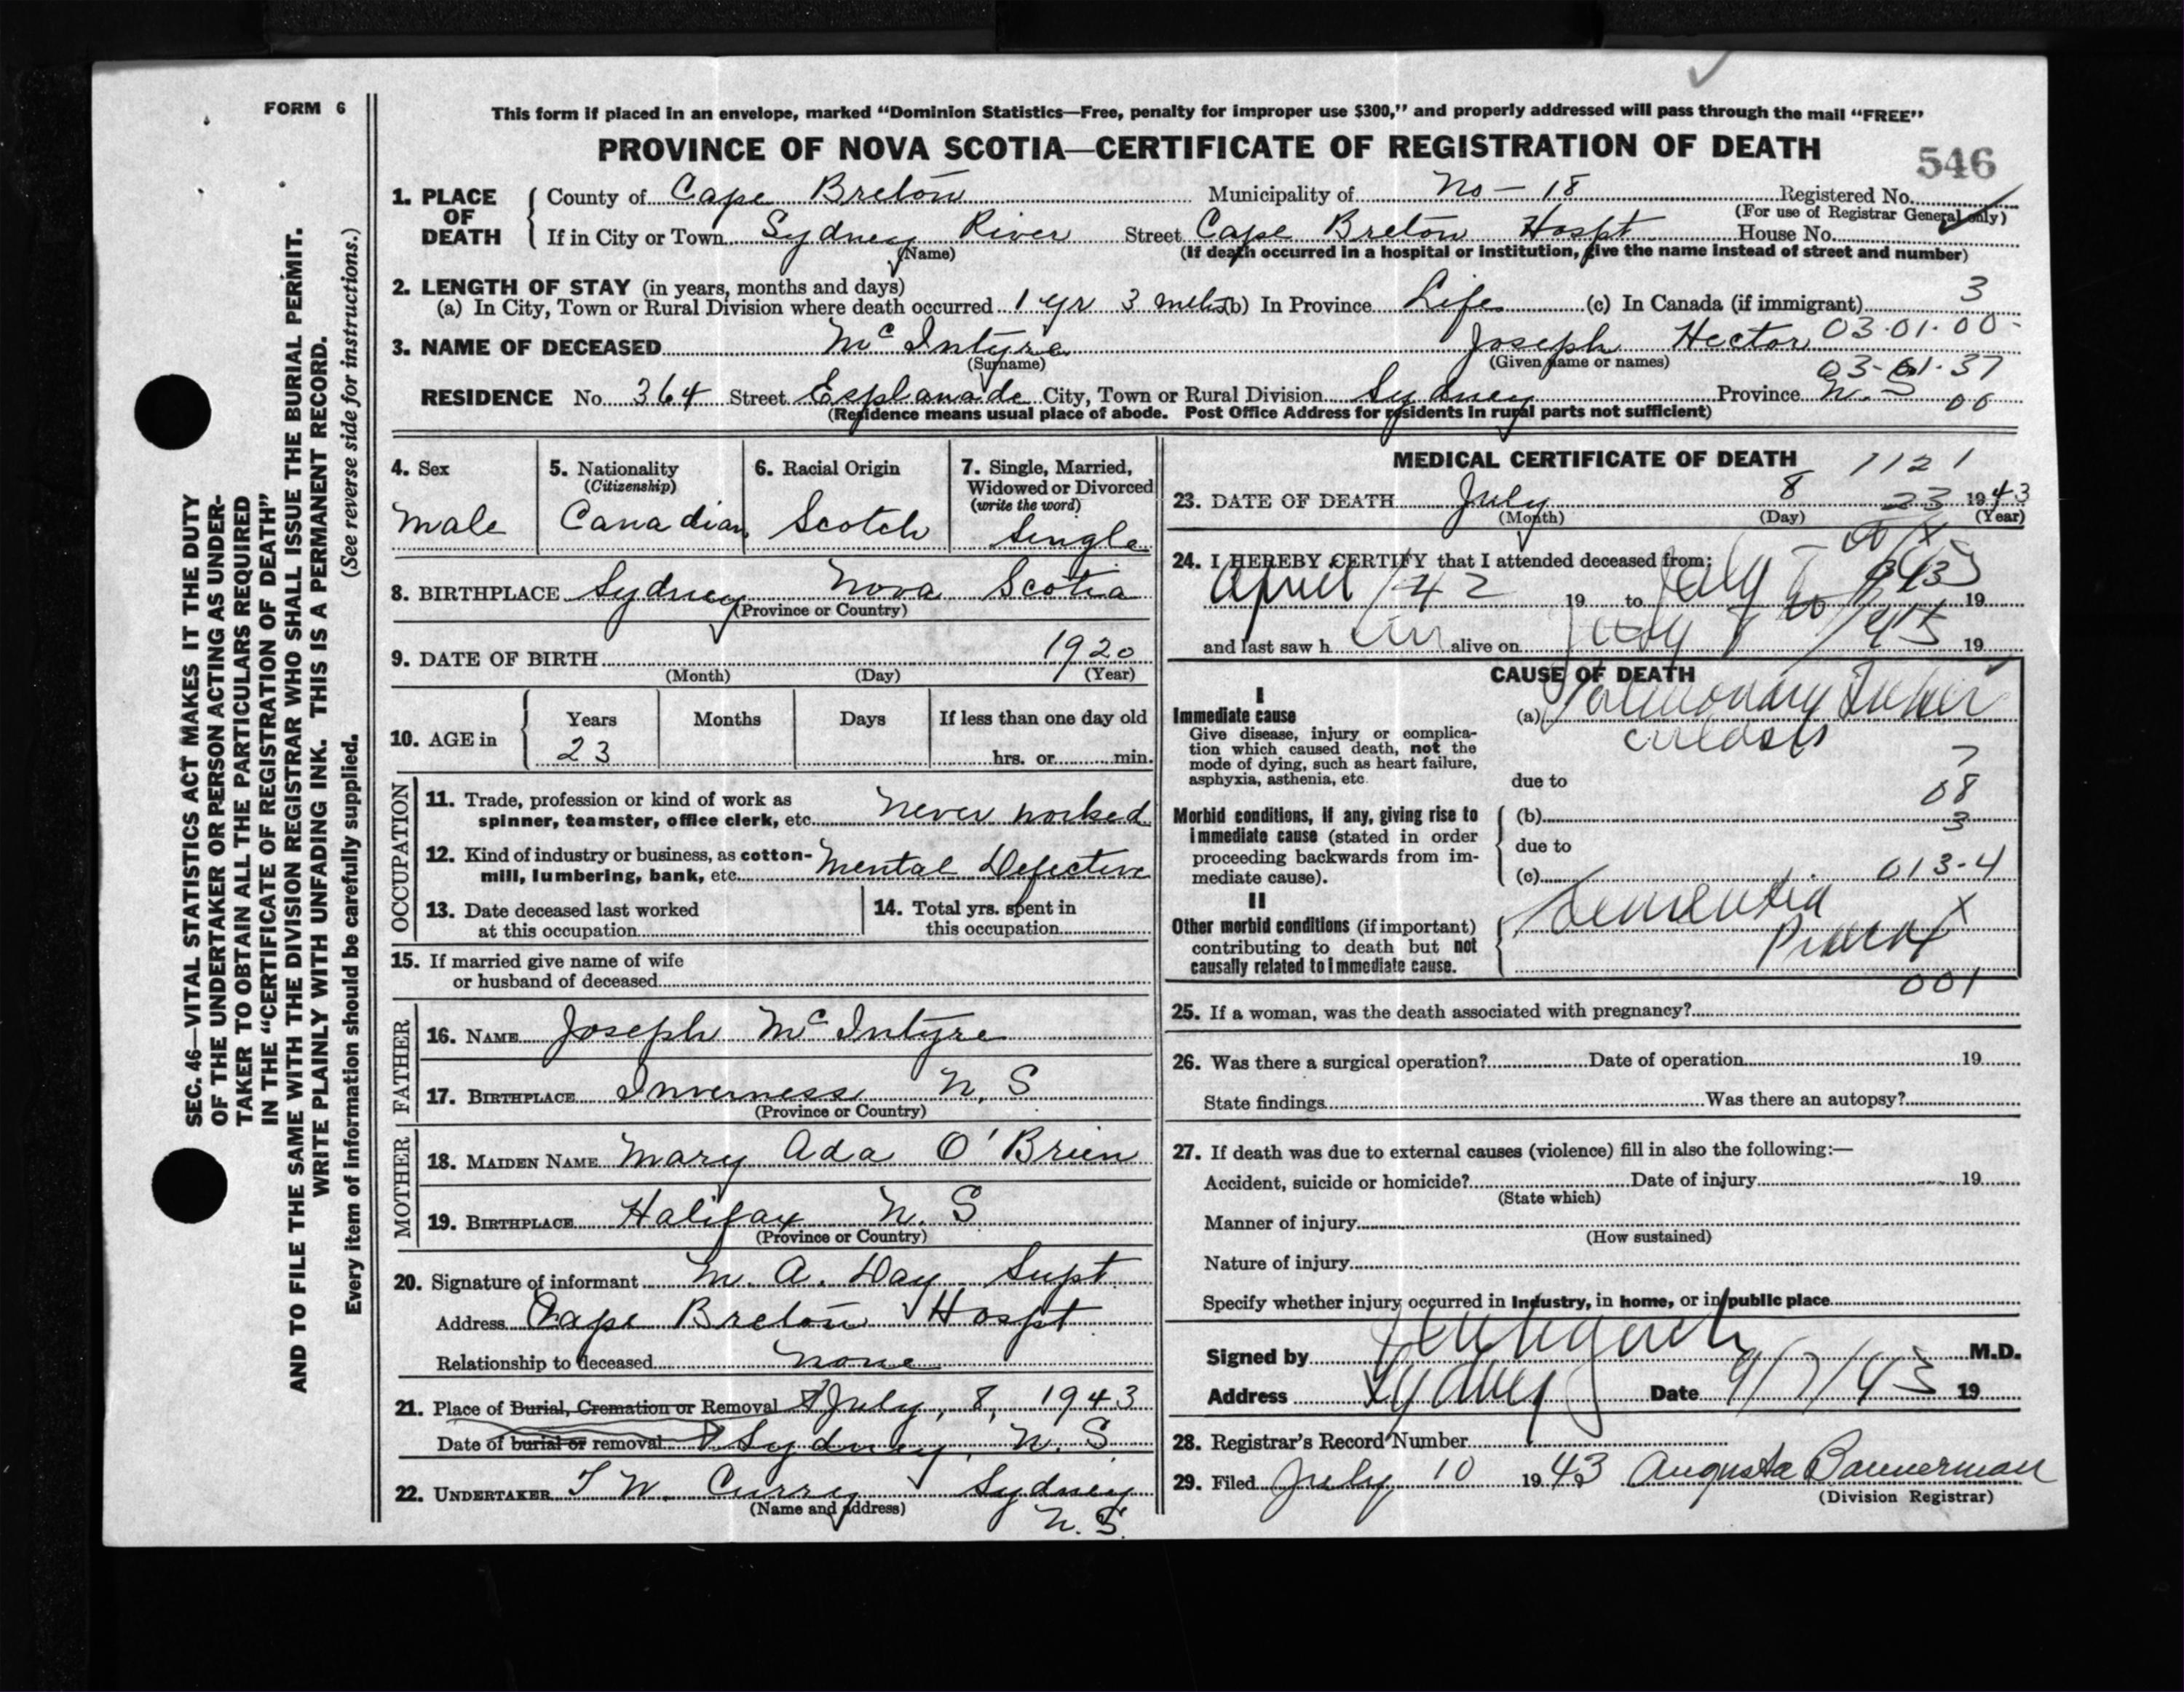 FORM 6
This form if placed in an envelope, marked “Dominion Statistics—Free, penalty for improper use $300,” and properly addressed will pass through the mail “FREE”
PROVINCE OF NOVA SCOTIA—CERTIFICATE OF REGISTRATION OF DEATH
546
1. PLACE OF DEATH
County of Cape Breton Municipality of No – 18 Registered No.
(For use of Registrar General only)
If in City or Town Sydney River Street Cape Breton Hospt House No.
(Name) (If death occurred in a hospital or institution, give the name instead of street and number)
2. LENGTH OF STAY (in years, months and days)
(a) In City, Town or Rural Division where death occurred 1 yr 3 mths (b) In Province Life (c) In Canada (if immigrant) 3
3. NAME OF DECEASED McIntyre Joseph Hector 03·01·00-
(Surname) (Given name or names)
03-01-37
RESIDENCE No. 364 Street Esplanade City, Town or Rural Division Sydney Province N.S 00
(Residence means usual place of abode. Post Office Address for residents in rural parts not sufficient)
4. Sex
Male
5. Nationality
(Citizenship)
Canadian
6. Racial Origin
Scotch
7. Single, Married,
Widowed or Divorced
(write the word)
Single
8. BIRTHPLACE Sydney Nova Scotia
(Province or Country)
9. DATE OF BIRTH 1920
(Month) (Day) (Year)
10. AGE in
Years Months Days If less than one day old
23 hrs. or min.
OCCUPATION
11. Trade, profession or kind of work as
spinner, teamster, office clerk, etc. Never worked
12. Kind of industry or business, as cotton-
mill, lumbering, bank, etc. Mental Defective
13. Date deceased last worked
at this occupation
14. Total yrs. spent in
this occupation
15. If married give name of wife
or husband of deceased
FATHER
16. NAME Joseph McIntyre
17. BIRTHPLACE Inverness N.S
(Province or Country)
MOTHER
18. MAIDEN NAME Mary Ada O'Brien
19. BIRTHPLACE Halifax N.S
(Province or Country)
20. Signature of informant M. A. Day Supt.
Address Cape Breton Hospt.
Relationship to deceased none
21. Place of Burial, Cremation or Removal July, 8, 1943
Date of burial or removal Sydney, N.S
22. UNDERTAKER T W. Curry Sydney
(Name and address) N.S.
MEDICAL CERTIFICATE OF DEATH 1121
23. DATE OF DEATH July 8 23 1943
(Month) (Day) (Year)
24. I HEREBY CERTIFY that I attended deceased from:
April /42 19 to July 19
and last saw h im alive on July 8 19
CAUSE OF DEATH
I
Immediate cause
Give disease, injury or complica-
tion which caused death, not the
mode of dying, such as heart failure,
asphyxia, asthenia, etc.
(a) Pulmonary Tuber
culosis
7
due to
08
Morbid conditions, if any, giving rise to
immediate cause (stated in order
proceeding backwards from im-
mediate cause).
(b) 3
due to
(c) 013-4
II
Other morbid conditions (if important)
contributing to death but not
causally related to immediate cause.
Dementia X
Praecox
001
25. If a woman, was the death associated with pregnancy?
26. Was there a surgical operation? Date of operation 19
State findings Was there an autopsy?
27. If death was due to external causes (violence) fill in also the following:—
Accident, suicide or homicide? Date of injury 19
(State which)
Manner of injury
(How sustained)
Nature of injury
Specify whether injury occurred in Industry, in home, or in public place
Signed by M.D.
Address Sydney Date 9/7/43 19
28. Registrar's Record Number
29. Filed July 10 1943 Augusta Bannerman
(Division Registrar)
SEC. 46—VITAL STATISTICS ACT MAKES IT THE DUTY
OF THE UNDERTAKER OR PERSON ACTING AS UNDER-
TAKER TO OBTAIN ALL THE PARTICULARS REQUIRED
IN THE “CERTIFICATE OF REGISTRATION OF DEATH”
AND TO FILE THE SAME WITH THE DIVISION REGISTRAR WHO SHALL ISSUE THE BURIAL PERMIT.
WRITE PLAINLY WITH UNFADING INK. THIS IS A PERMANENT RECORD.
Every item of information should be carefully supplied. (See reverse side for instructions.)